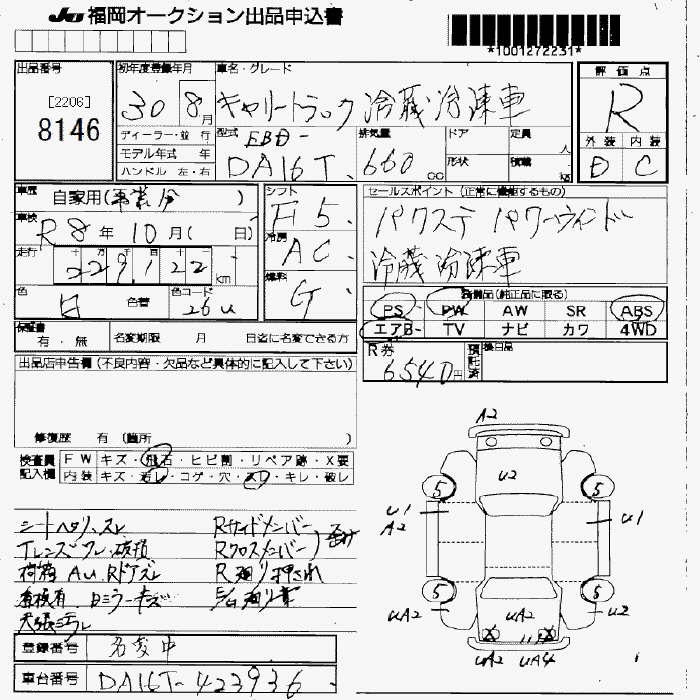 JU 福岡オークション出品申込書
*1001272231*
出品番号
[2206]
8146
初年度登録年月
30 8月
ディーラー・並 行
モデル年式 年
ハンドル 左・右
車名・グレード
キャリートラック 冷蔵・冷凍車
型式
EBD-
DA16T
排気量
660 CC
ドア
定員 人
形状
積載 kg
評価点
R
外装 内装
D C
車歴
自家用(事業分 )
車検
R8年10月( 日)
走行
十 万 千 百
229,122 km
色
白
色替
色コード
26U
シフト
F5
冷房
AC
燃料
G
セールスポイント (正常に機能するもの)
パワステ パワーウィンドー
冷蔵冷凍車
装備品(純正品に限る)
PS PW AW SR ABS
エアB TV ナビ カワ 4WD
保証書
有・無
名変期限 月 日迄に名変できる方
R券
6540円
預託済
後日品
出品店申告欄 (不良内容・欠品など具体的に記入して下さい)
修復歴 有 (箇所 )
検査員記入欄
FW キズ・飛石・ヒビ割・リペア跡・X要
内装 キズ・汚レ・コゲ・穴・スレ・キレ・破レ
シートヘタリ、スレ
Tレンズワレ・破損
荷箱 AU、Rドアズレ
Rサイドメンバー
Rクロスメンバー
R廻り押され
登録番号
名変中
車台番号
DA16T-423936
A2
U2
5
5
U1
A2
U1
5
5
UA2
UA2
U2
X
X
UA2
UA4